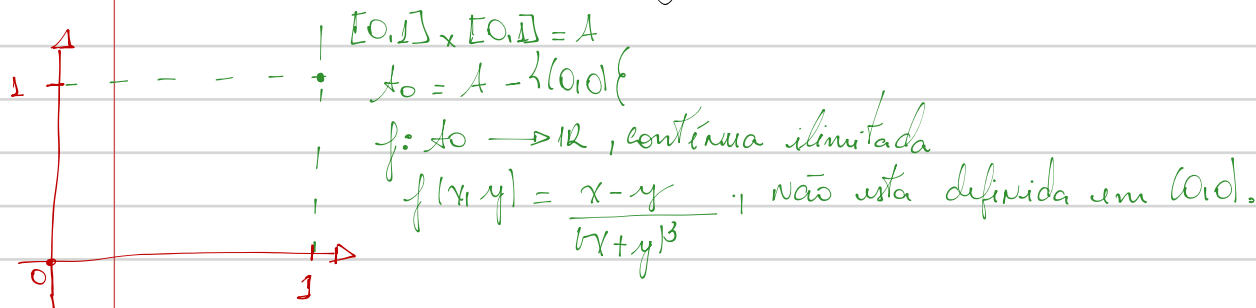 [0,1] x [0,1] = A
1
A0 = A - {(0,0)}
f: A0 → IR, contínua ilimitada
f(x,y) = x-y / (x+y)^3 ; não esta definida em (0,0).
0
1